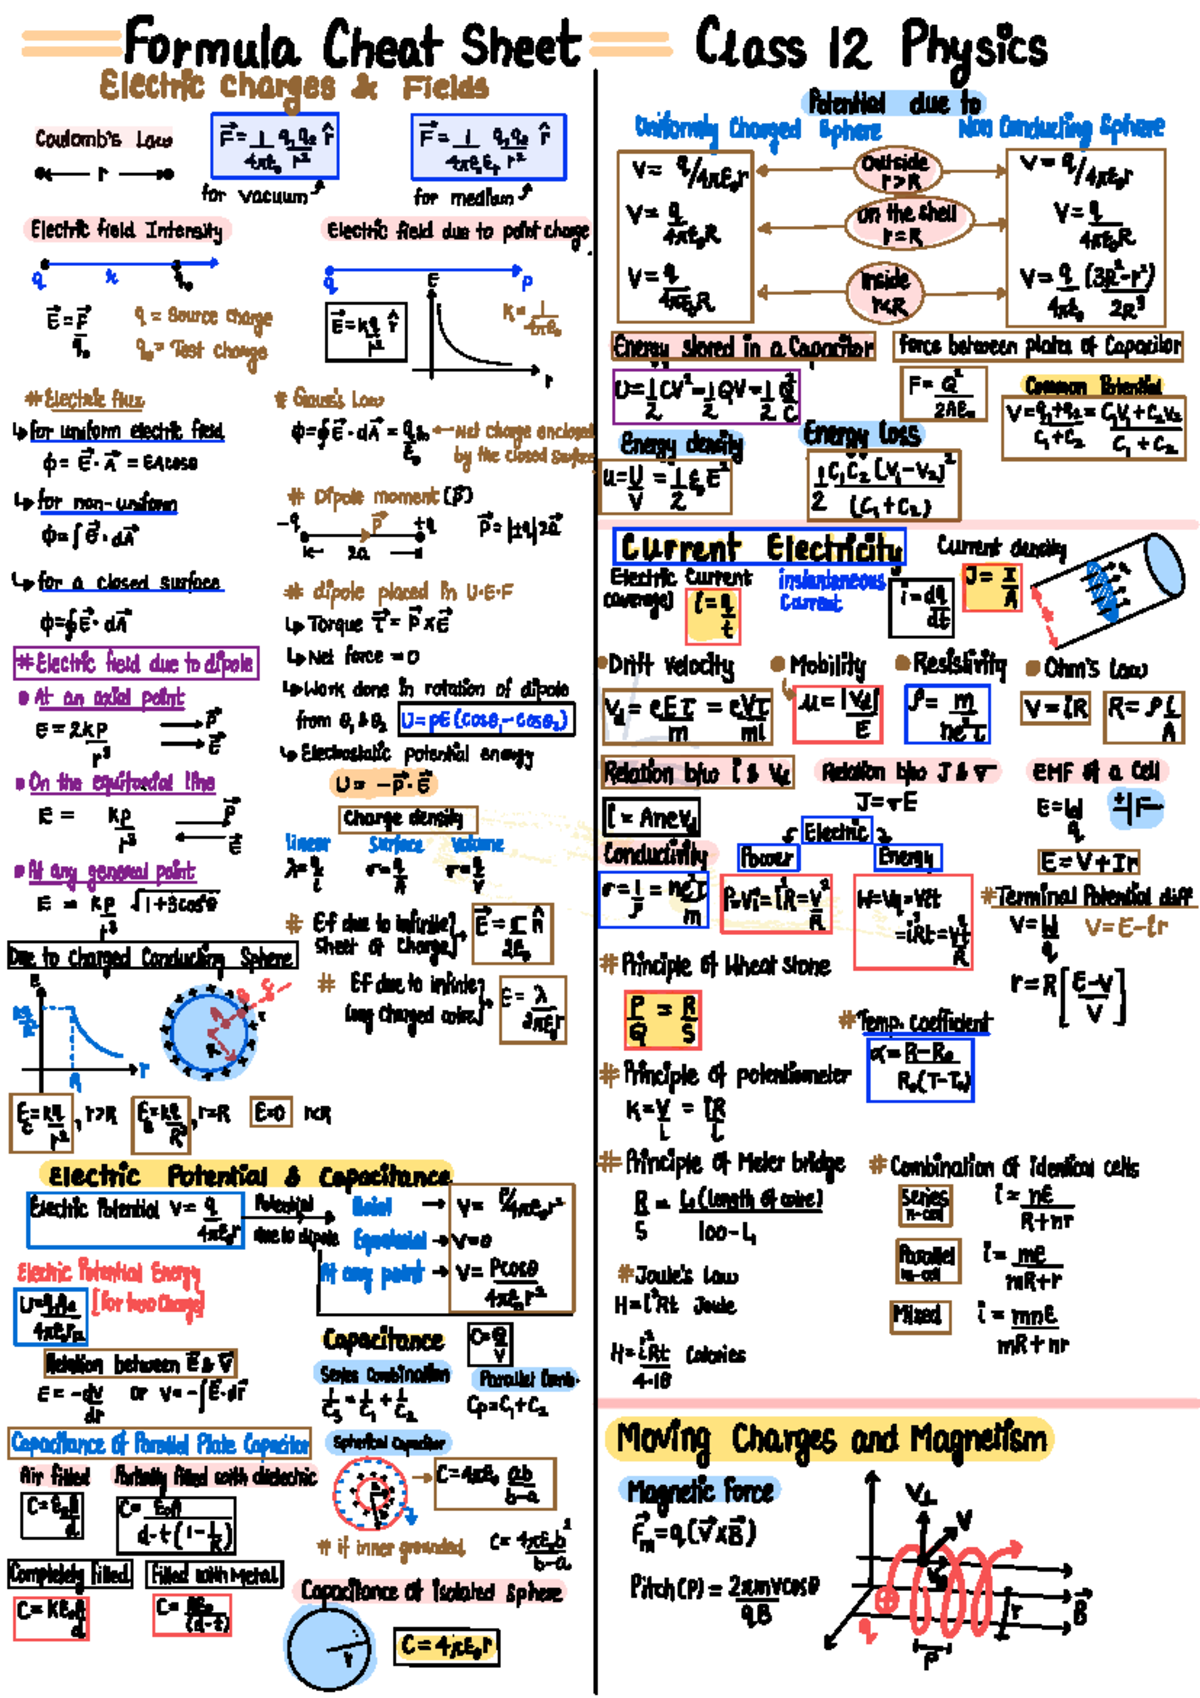 Formula Cheat Sheet Class 12 Physics
Electric Charges & Fields
Coulomb's Law
r
F = 1/4πε₀ q₁q₂/r² r̂
for vacuum
F = 1/4πε₀εᵣ q₁q₂/r² r̂
for medium
Electric field Intensity
q x q₀
E = F/q₀
q = Source charge
q₀ = Test charge
Electric field due to point charge
q P
E = kq/r² r̂
E
r
K = 1/4πε₀
# Electric flux
↳ for uniform electric field
ϕ = E · A = EAcosθ
↳ for non-uniform
ϕ = ∫ E · dA
↳ for a closed surface
ϕ = ∮ E · dA
# Gauss's Law
ϕ = ∮ E · dA = qᵢₙ/ε₀ ← Net charge enclosed
by the closed surface
# Dipole moment (p)
-q p +q
2a
p = |±q| 2a
# dipole placed in U.E.F
↳ Torque τ = p × E
↳ Net force = 0
↳ Work done in rotation of dipole
from θ₁ & θ₂ U = pE (cosθ₁ - cosθ₂)
↳ Electrostatic potential energy
U = -p · E
# Electric field due to dipole
At an axial point
E = 2kp/r³
p
E
On the equitorial line
E = kp/r³
p
E
At any general point
E = kp/r³ √1+3cos²θ
Charge density
Linear Surface Volume
λ = q/L σ = q/A σ = q/V
# Ef due to infinite sheet of charge
E = σ/2ε₀ n̂
# Ef due to infinite long charged wire
E = λ/2πε₀r
Due to charged Conducting Sphere
E
kq/R²
R r
E = kq/r², r>R
E = kq/R², r=R
E=0 r<R
Electric Potential & Capacitance
Electric Potential V = q/4πε₀r
Potential due to dipole
Axial → V = P/4πε₀r²
Equatorial → V=0
At any point → V = Pcosθ/4πε₀r²
Electric Potential Energy
U = q₁q₂/4πε₀r₁₂ [for two Charge]
Relation between E & V
E = -dV/dr or V = -∫E·dr
Capacitance C = Q/V
Series Combination
1/Cs = 1/C₁ + 1/C₂
Parallel Comb.
Cp = C₁ + C₂
Capacitance of Parallel Plate Capacitor
Air filled
C = ε₀A/d
Partially filled with dielectric
C = ε₀A/d-t(1-1/K)
Completely filled
C = Kε₀A/d
Filled with Metal
C = Aε₀/(d-t)
Spherical Capacitor
C = 4πε₀ ab/b-a
# if inner grounded
C = 4πε₀b²/b-a
Capacitance of Isolated Sphere
r
C = 4πε₀r
Potential due to
Uniformly Charged Sphere Non Conducting Sphere
V = q/4πε₀r Outside r>R V = q/4πε₀r
V = q/4πε₀R on the shell r=R V = q/4πε₀R
V = q/4πε₀R Inside r<R V = q/4πε₀ (3R²-r²)/2R³
Energy stored in a Capacitor
U = 1/2 CV² = 1/2 QV = 1/2 Q²/C
Force between plates of Capacitor
F = Q²/2Aε₀
Common Potential
V = q₁+q₂/C₁+C₂ = C₁V₁+C₂V₂/C₁+C₂
Energy density
u = U/V = 1/2 ε₀E²
Energy loss
1/2 C₁C₂(V₁-V₂)²/(C₁+C₂)
Current Electricity
Electric Current (average) i = q/t
instantaneous Current i = dq/dt
Current density J = I/A
Drift Velocity
Vd = eEτ/m = eVτ/ml
Mobility
μ = |Vd|/E
Resistivity
ρ = m/ne²τ
Ohm's law
V = iR R = ρ l/A
Relation b/w i & Vd
i = AneVd
Relation b/w J & σ
J = σE
EMF of a Cell
E = W/q
E = V + Ir
Conductivity
σ = 1/ρ = ne²τ/m
Electric
Power
P = Vi = i²R = V²/R
Energy
W = Vq = Vit
= i²Rt = V²t/R
# Terminal Potential diff
V = W/q V = E-ir
r = R [E-V/V]
# Principle of Wheat stone
P/Q = R/S
# Temp. Coefficient
α = R-R₀/R₀(T-T₀)
# Principle of potentiometer
K = V/L = IR/L
# Principle of Meter bridge
R/S = L₁(length of wire)/100-L₁
# Combination of identical cells
Series n-cell i = nE/R+nr
Parallel m-cell i = mE/mR+r
Mixed i = mnE/mR+nr
# Joule's Law
H = i²Rt Joule
H = i²Rt/4.18 Calories
Moving Charges and Magnetism
Magnetic force
Fm = q(V×B)
Pitch (P) = 2πmvcosθ/qB
V⊥
V
B
r
q
P